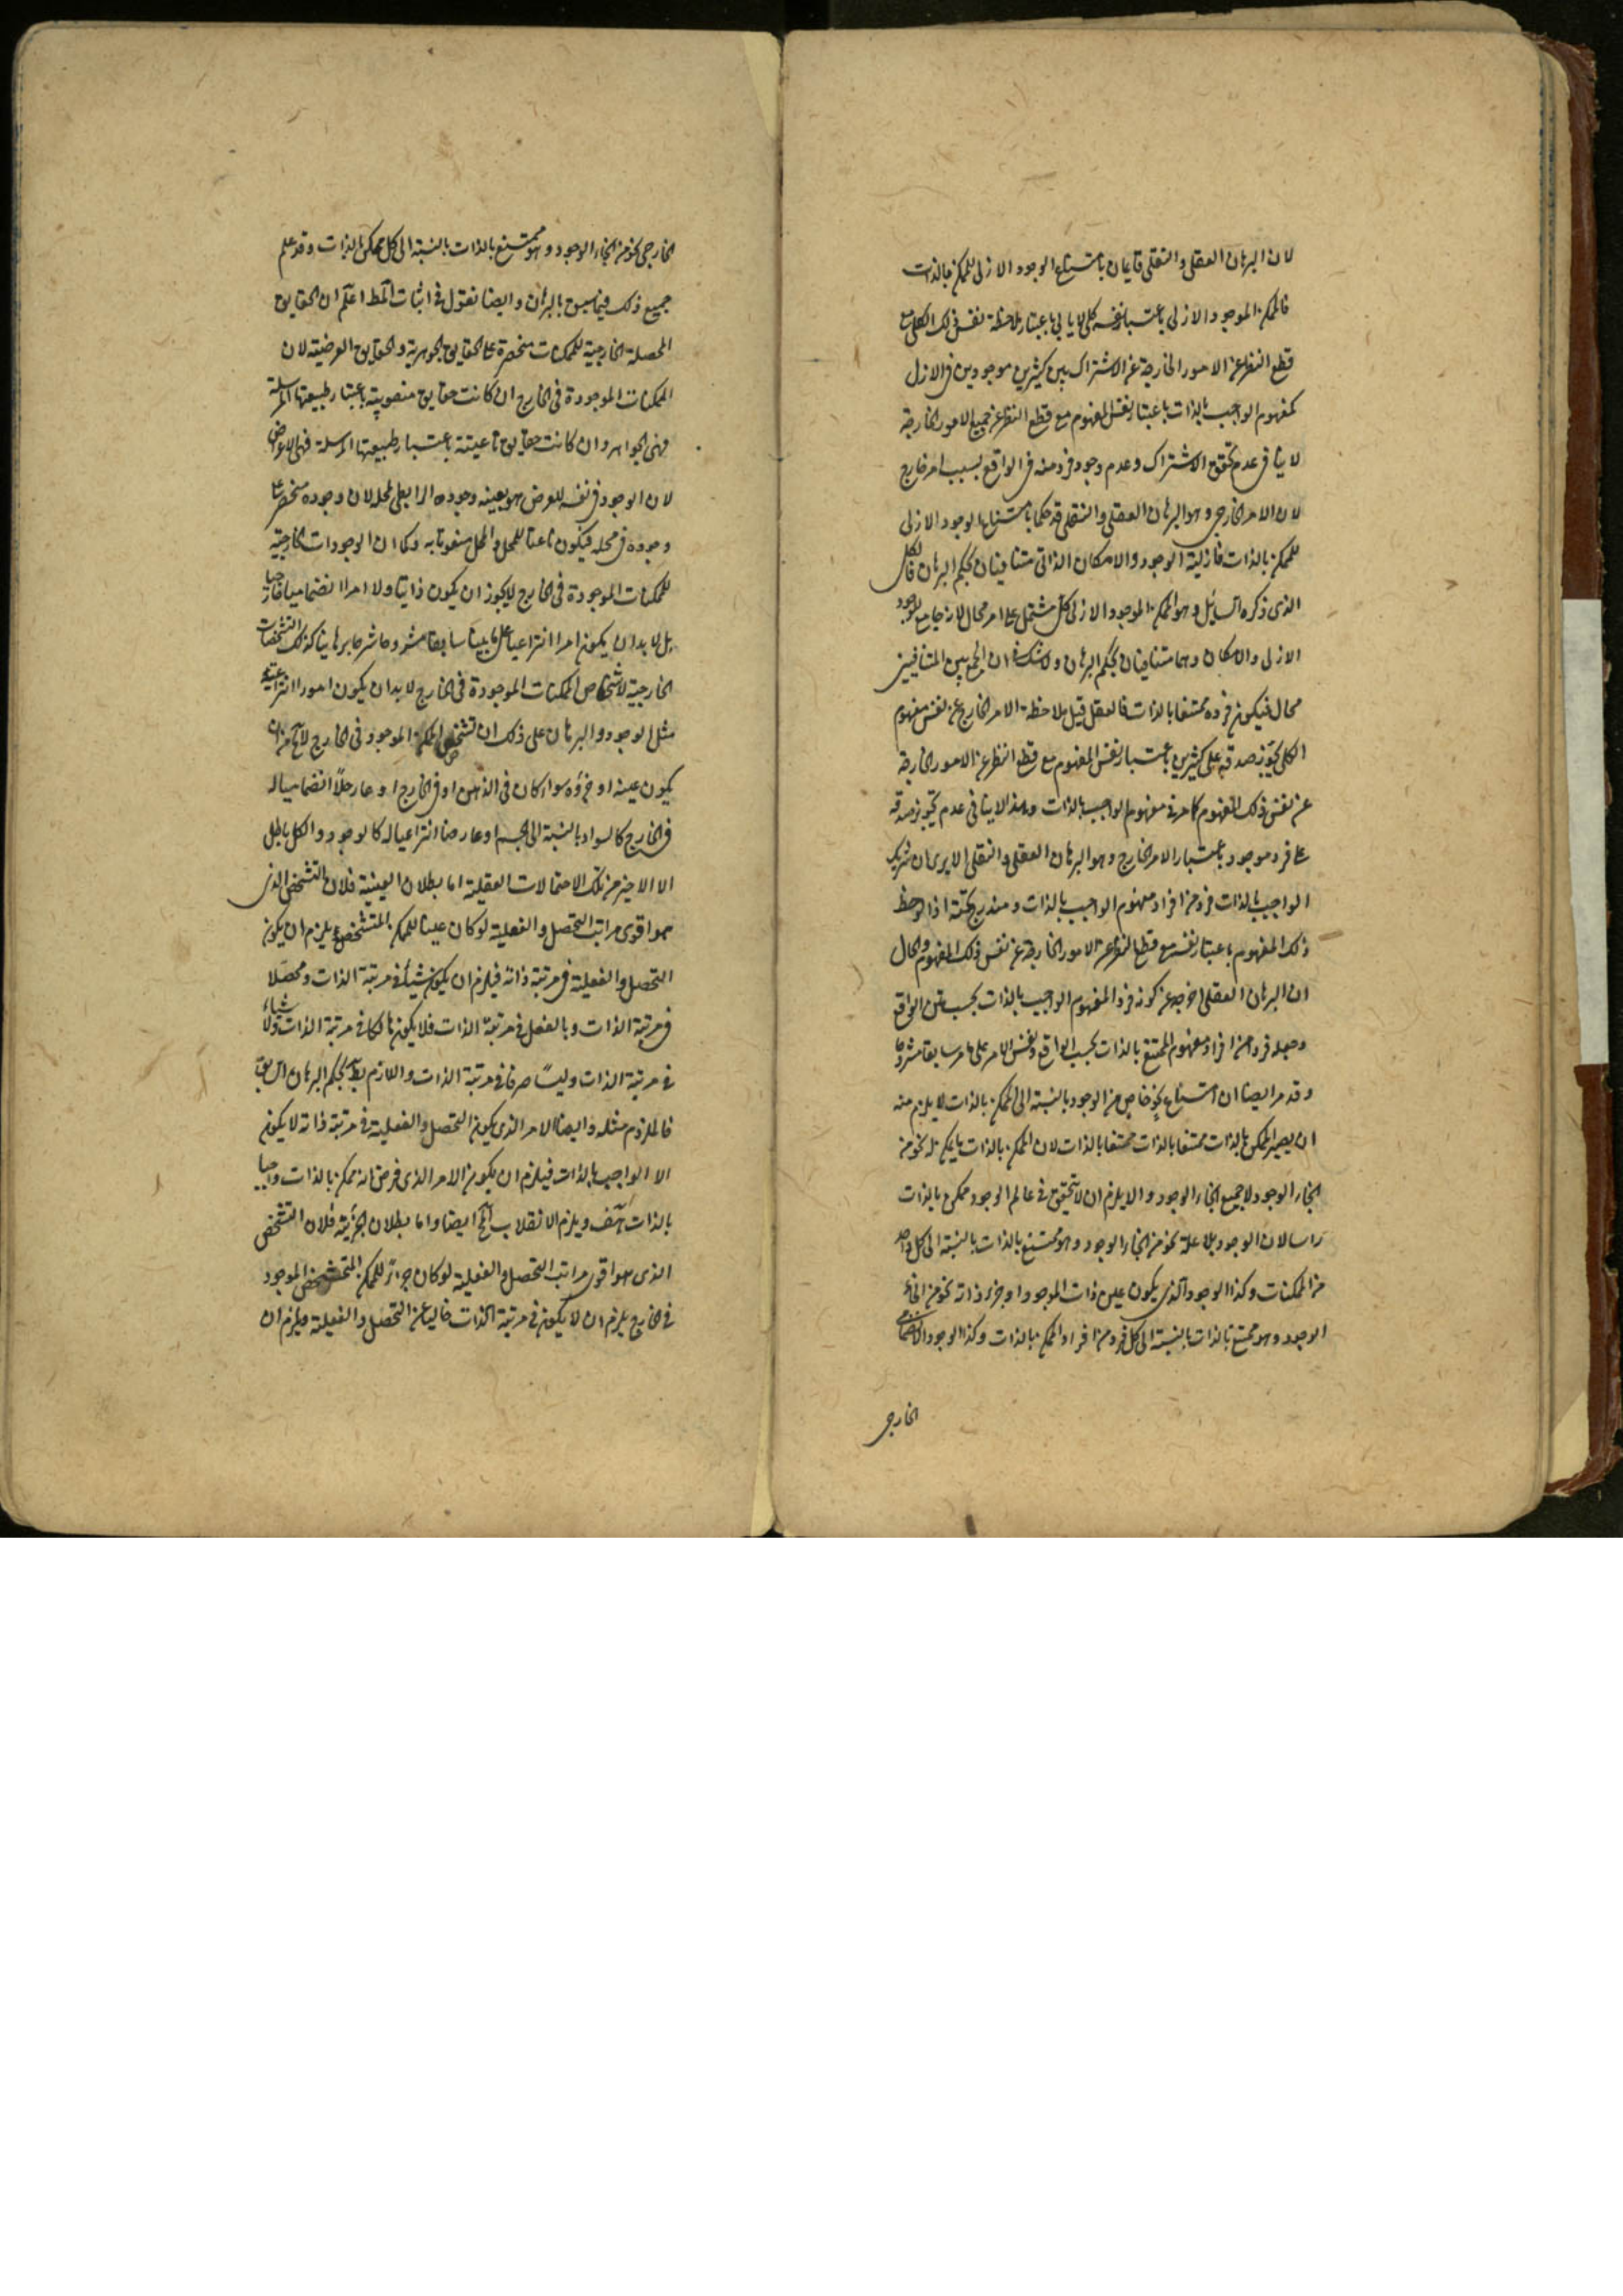 لان البرهان العقلى والنقلى قايمان بامتناع الوجود الازلى للممكن بالذات
فالممكن الموجود الازلى باعتبار نفسه كلى لا يابى باعتبار ملاحظة نفس ذلك الكلى مع
قطع النظر عن الامور الخارجة عن الاشتراك بين كثيرين موجودين فى الازل
كمفهوم الواجب بالذات باعتبار نفس المفهوم مع قطع النظر عن جميع الامور الخارجة
لا ينافى عدم تحقق الاشتراك وعدم وجود فرد منه فى الواقع بسبب امر خارج
لان الامر الخارجى وهو البرهان العقلى والنقلى قد حكما بامتناع الوجود الازلى
للممكن بالذات فازلية الوجود والامكان الذاتى متنافيتان بحكم البرهان فالكلى
الذى ذكره السائل وهو الممكن الموجود الازلى كلى مشتمل على امر محال لانه جامع للوجود
الازلى والامكان وهما متنافيان بحكم البرهان ولا شك فى ان الجمع بين المتنافيين
محال فيكون فرده ممتنعا بالذات فالعقل قبل ملاحظة الامر الخارج عن نفس مفهوم
الكلى يجوز صدقه على كثيرين باعتبار نفس المفهوم مع قطع النظر عن الامور الخارجة
عن نفس ذلك المفهوم كما مر فى مفهوم الواجب بالذات وهذا لا ينافى عدم تجويز صدقه
على فرد موجود باعتبار الامر الخارج وهو البرهان العقلى والنقلى الا يرى ان شريك
الواجب بالذات فرد من افراد مفهوم الواجب بالذات ومندرج تحته اذا لوحظ
ذلك المفهوم باعتبار نفسه مع قطع النظر عن الامور الخارجة عن نفس ذلك المفهوم والحال
ان البرهان العقلى اخرجه عن كونه فردا لمفهوم الواجب بالذات بحسب متن الواقع
وجعله فردا من افراد مفهوم الممتنع بالذات بحسب الواقع ونفس الامر على ما مر سابقا مشروحا
وقد مر ايضا ان امتناع نحو خاص من الوجود بالنسبة الى الممكن بالذات لا يلزم منه
ان يصير الممكن بالذات ممتنعا بالذات لان الممكن بالذات ما يمكن له نحو من
انحاء الوجود لا جميع انحاء الوجود والا يلزم ان لا يتحقق فى عالم الوجود ممكن بالذات
راسا لان الوجود بلا علة نحو من انحاء الوجود وهو ممتنع بالذات بالنسبة الى كل واحد
من الممكنات وكذا الوجود الذى يكون عين ذات الموجود او جزء ذاته نحو من انحاء
الوجود وهو ممتنع بالذات بالنسبة الى كل فرد من افراد الممكن بالذات وكذا الوجود الانضمامى
الخارجى
الخارجى نحو من انحاء الوجود وهو ممتنع بالذات بالنسبة الى كل ممكن بالذات وقد علم
جميع ذلك فيما سبق بالبرهان وايضا نقول فى اثبات المط اعلم ان الحقايق
المحصلة الخارجية للممكنات منحصرة على الحقايق الجوهرية والحقايق العرضية لان
الممكنات الموجودة فى الخارج ان كانت حقايق منعوتية باعتبار طبيعتها المرسلة
فهى الجواهر وان كانت حقايق ناعتية باعتبار طبيعتها المرسلة فهى الاعراض
لان الوجود فى نفسه للعرض هو بعينه وجوده الرابطى لمحله لان وجوده منحصر على
وجوده فى محله فيكون ناعتا للمحل والمحل منعوتا به وكما ان الوجودات الخارجية
للممكنات الموجودة فى الخارج لا يجوز ان يكون ذاتيا ولا امرا انضماميا خارجيا
بل لا بد ان يكون امرا انتزاعيا على ما بينا سابقا مشروحا شرحا برهانيا كذلك التشخصات
الخارجية لاشخاص الممكنات الموجودة فى الخارج لا بد ان يكون امورا انتزاعية
مثل الوجود والبرهان على ذلك ان تشخص الممكن الموجود فى الخارج لا يخ من ان
يكون عينه او جزؤه سواء كان فى الذهن او فى الخارج او عارضا انضماميا له
فى الخارج كالسواد بالنسبة الى الجسم او عارضا انتزاعيا له كالوجود والكل باطل
الا الاخير من تلك الاحتمالات العقلية اما بطلان العينية فلان التشخص الذى
هو اقوى مراتب التحصل والفعلية لو كان عينا للممكن المتشخص يلزم ان يكون
التحصل والفعلية فى مرتبة ذاته فيلزم ان يكون شيئا فى مرتبة الذات ومحصلا
فى مرتبة الذات وبالفعل فى مرتبة الذات فلا يكون هالكا فى مرتبة الذات ولا لا شيئا
فى مرتبة الذات وليسا صرفا فى مرتبة الذات واللازم بط بحكم البرهان السابق
فالملزوم مثله وايضا الامر الذى يكون التحصل والفعلية فى مرتبة ذاته لا يكون
الا الواجب بالذات فيلزم ان يكون الامر الذى فرض انه ممكن بالذات واجبا
بالذات هف ويلزم الانقلاب المح ايضا واما بطلان الجزئية فلان التشخص
الذى هو اقوى مراتب التحصل والفعلية لو كان جزءا للممكن المتشخص الموجود
فى الخارج يلزم ان لا يكون فى مرتبة الذات خاليا عن التحصل والفعلية ويلزم ان